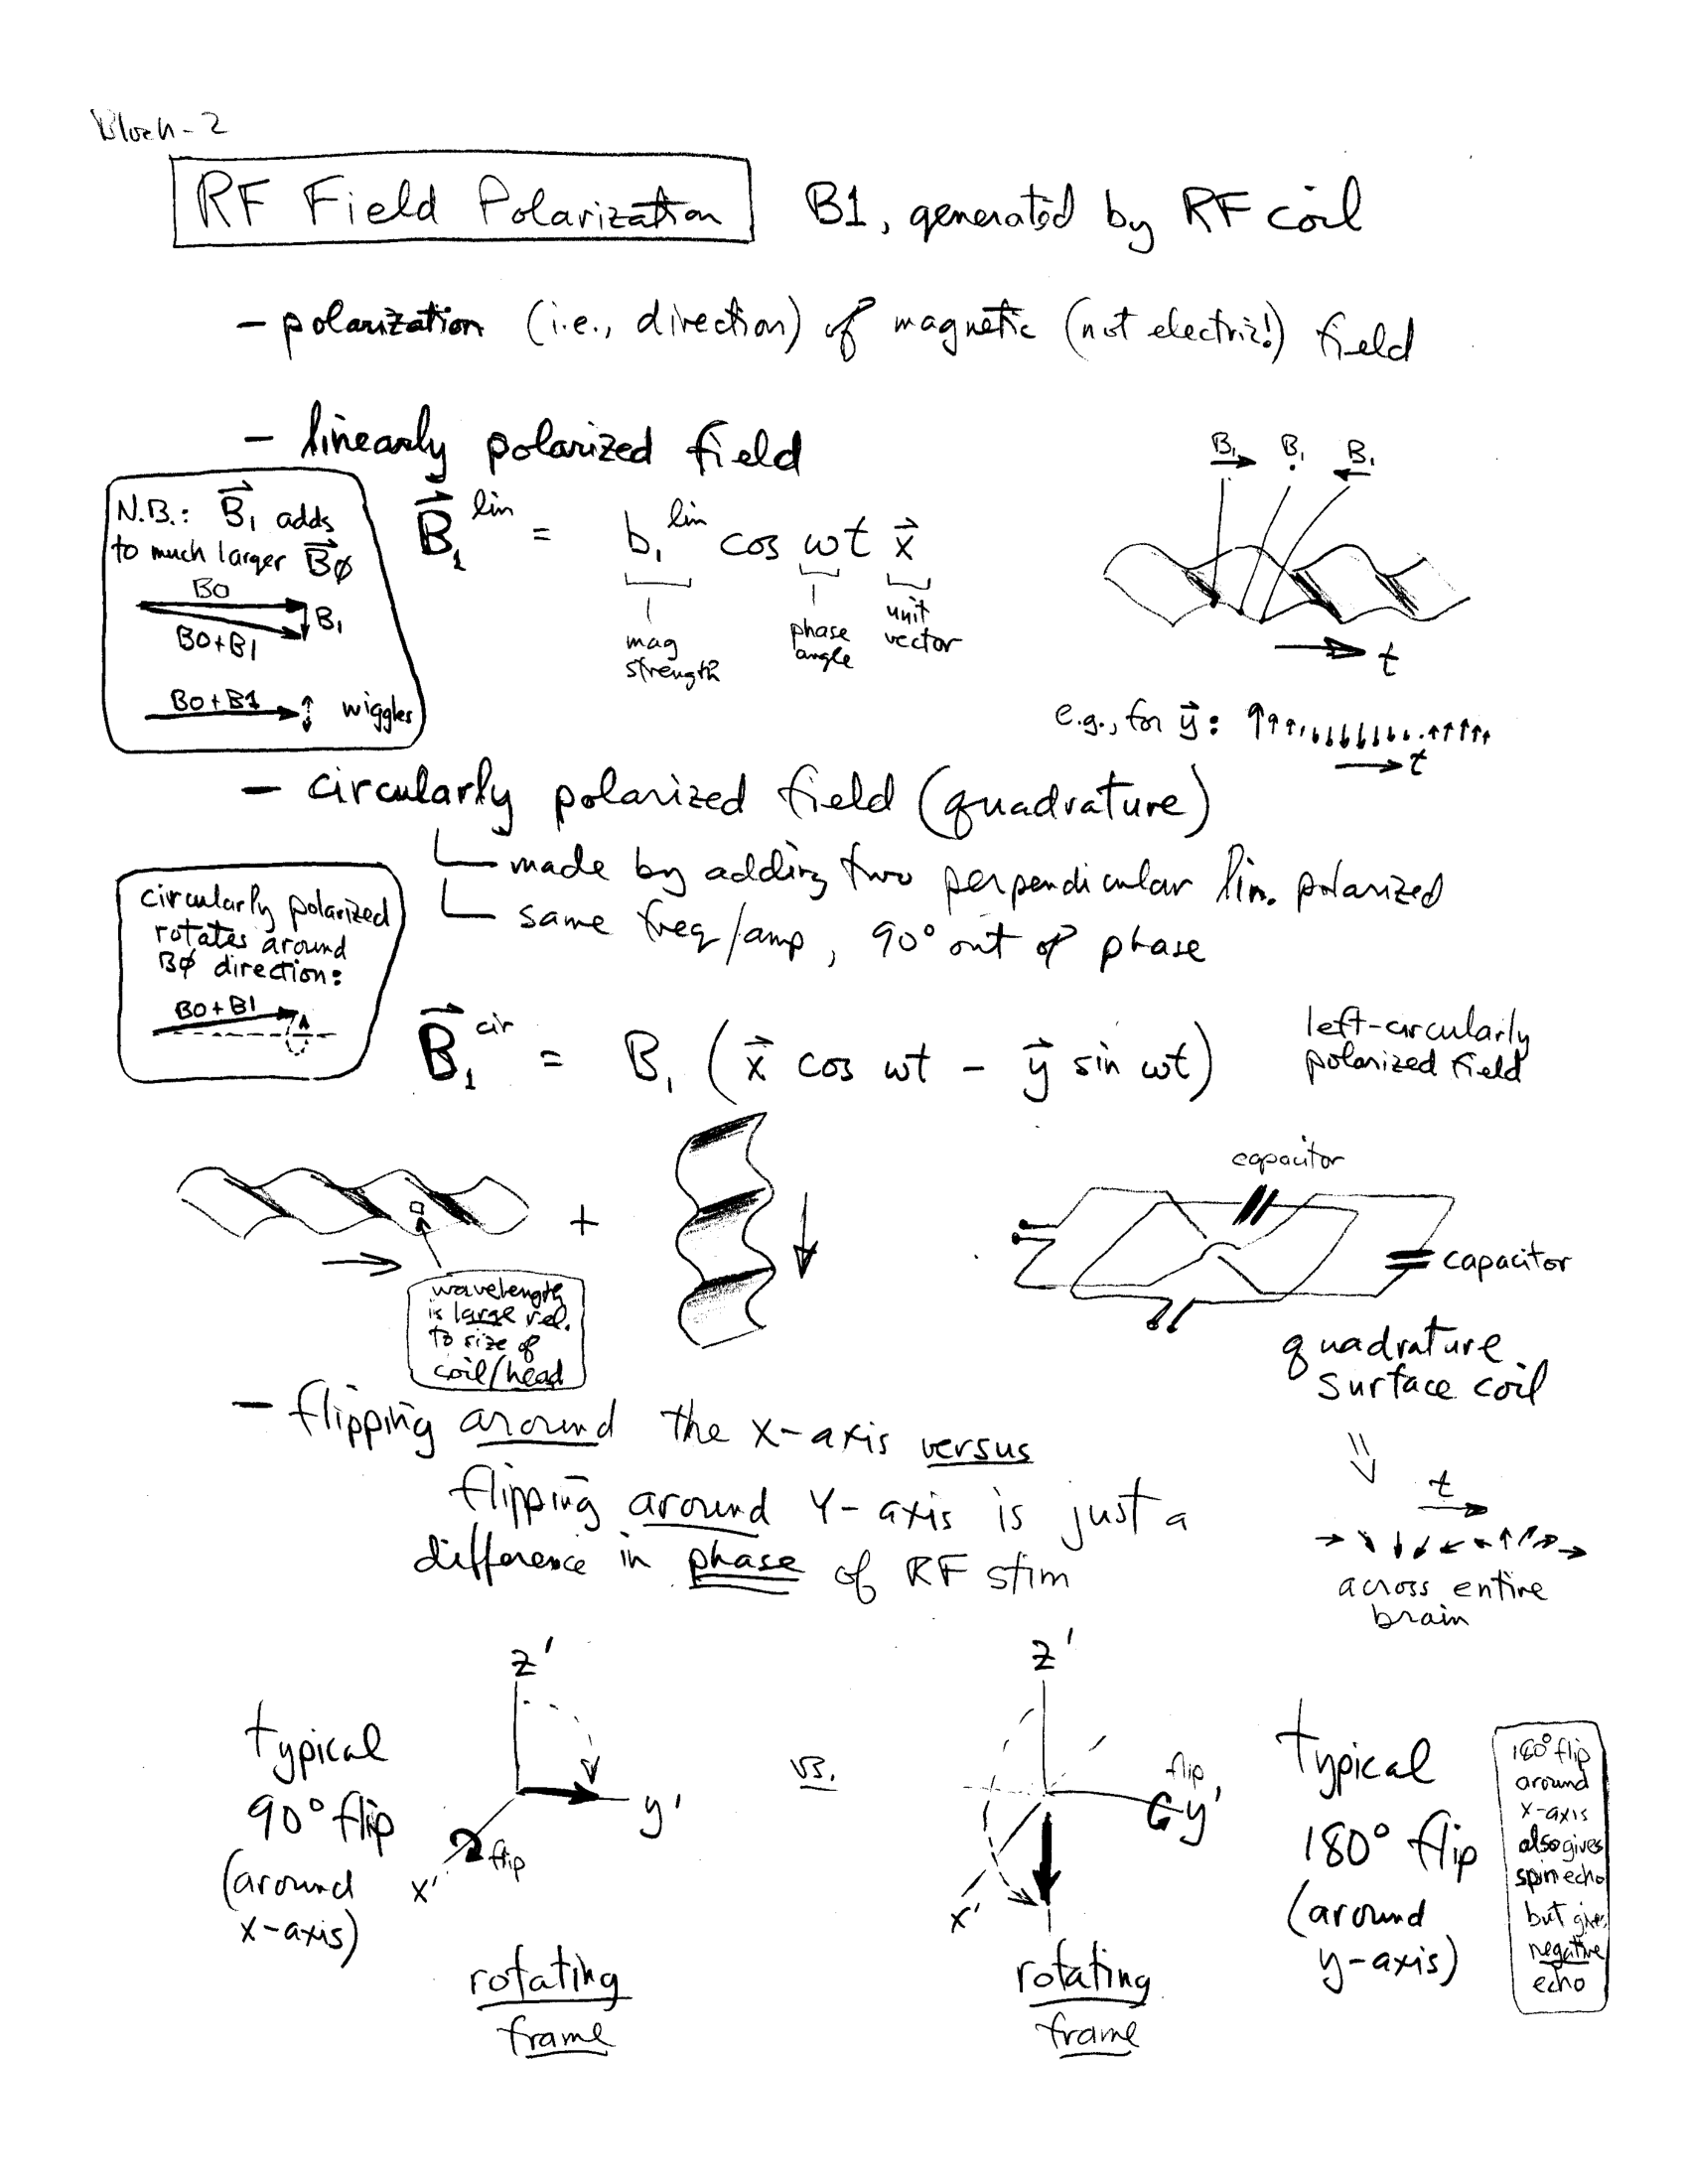 Bloch-2
RF Field Polarization B1, generated by RF coil
- polarization (i.e., direction) of magnetic (not electric!) field
- linearly polarized field
B₁ B₁ B₁
N.B.: B⃗₁ adds
to much larger B⃗∅
B0
B₁
B0+B1
B0+B1 wiggles
B⃗₁ˡⁱⁿ = b₁ˡⁱⁿ cos ωt x⃗
mag strength
phase angle
unit vector
t
e.g., for y⃗:
t
- circularly polarized field (quadrature)
made by adding two perpendicular lin. polarized
same freq/amp, 90° out of phase
circularly polarized
rotates around
B∅ direction:
B0+B1
B⃗₁ᶜⁱʳ = B₁ (x⃗ cos ωt - y⃗ sin ωt)
left-circularly
polarized field
+
wavelength
is large rel.
to size of
coil/head
capacitor
capacitor
quadrature
surface coil
- flipping around the x-axis versus
flipping around Y-axis is just a
difference in phase of RF stim
t
across entire
brain
typical
90° flip
(around
x-axis)
z'
y'
x'
flip
rotating
frame
vs.
z'
flip
y'
x'
rotating
frame
typical
180° flip
(around
y-axis)
180° flip
around
x-axis
also gives
spin echo
but gives
negative
echo